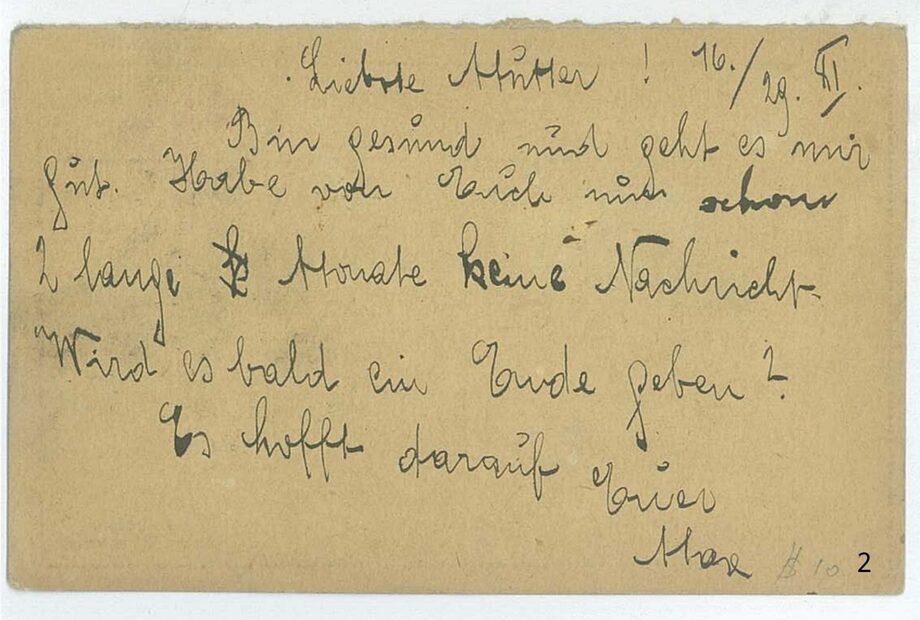 Liebste Mutter ! 16./29. XI.
Bin gesund und geht es mir
gut. Habe von Euch nun schon
2 lange Monate keine Nachricht.
Wird es bald ein Ende geben?
Es hofft darauf Euer
Max
$ 10 2